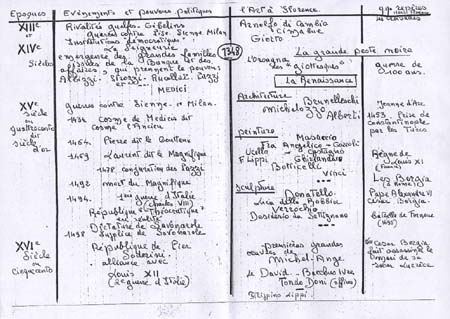 Epoques
Evénements et pouvoirs politiques
l'Art à Florence
XIIIe
Rivalités guelfes. Gibelins
guerres contre Pise. Sienne. Milan
"Institutions démocratiques"
La Seigneurie
Arnolfo di Cambio
Cimabue
Giotto
XIVe
Siècles
émergence des grandes familles
issues de la Banque et des
affaires, qui prennent le pouvoir
Albizzi Pazzi
MEDICI
1348
La grande peste noire
l'Orcagna
"les giottesques"
guerre de
100 ans.
La Renaissance
XVe
siècle
ou
quattrocento
dit
siècle
d'or
guerres contre Sienne et Milan.
1434 Cosme de Medicis dit
Cosme l'Ancien
1464. Pierre dit le Goutteux
1469 Laurent dit le Magnifique
1478 conjuration des Pazzi
1492 mort du Magnifique
1494. 1ère guerre d'Italie
(Charles VIII)
République "théocratique"
en réalité
Dictature de Savonarole
1498 Supplice de Savonarole
Architecture
Brunelleschi
Michelozzo
Alberti
peinture
Masaccio
Fra Angelico - Gozzoli
Uccello Castagno
F. Lippi Ghirlandaio
Botticelli
Vinci
sculpture
Donatello
Luca della Robbia
Verrocchio
Desiderio da Settignano
Jeanne d'Arc
1453. Prise de
Constantinople
par les Turcs
Règne de
Louis XI
(France)
Les Borgia
(à Rome)
Pape Alexandre VI
César Borgia.
(1495)
XVIe
Siècle
ou
Cinquecento
République de Pier
Soderini
alliance avec
Louis XII
(2e guerre d'Italie)
premières grandes
œuvres de
Michel-Ange.
le David - Bacchus ivre
Tondo Doni (offices)
Filippino Lippi
César Borgia
fait assassiner le
mari de sa
sœur Lucrèce